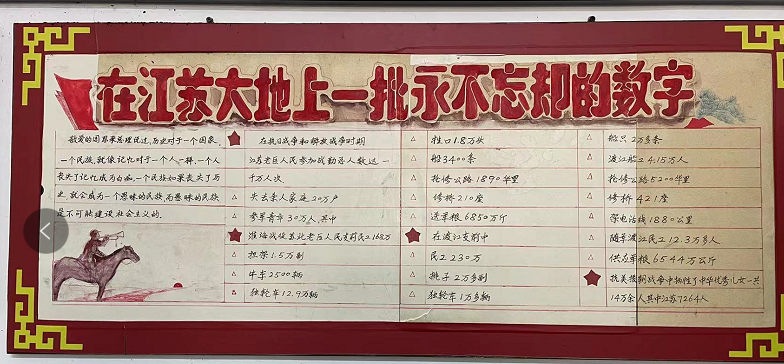 在江苏大地上一批永不忘却的数字
敬爱的周恩来总理说过，历史对于一个国家、
一个民族，就像记忆对于一个人一样，一个人
丧失了记忆成为白痴，一个民族如果丧失了历
史，就会成为一个愚昧的民族，而愚昧的民族
是不可能建设社会主义的。
在抗日战争和解放战争时期
江苏老区人民参加战勤总人数达一
千万人次
失去亲人家庭20万户
参军青年30万人，其中
淮海战役苏北老区人民支前民工168万
担架1.5万副
牛车2500辆
独轮车12.9万辆
牲口1.8万头
船3400条
抢修公路1890华里
修桥210座
送军粮6850万斤
在渡江支前中
民工230万
挑子2万多副
独轮车1万多辆
船只2万多条
渡江船工4.15万人
抢修公路5200华里
修桥421座
架电话线1880公里
随军渡江民工12.3万多人
供应军粮6544万公斤
抗美援朝战争中牺牲了中华优秀儿女一共
14万余人其中江苏7264人